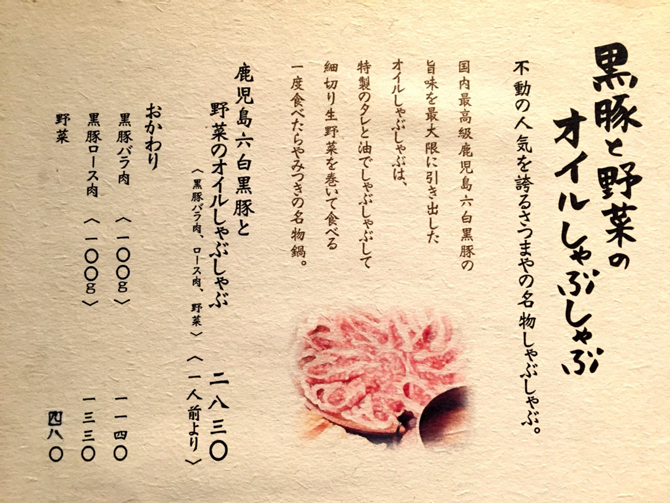 黒豚と野菜の
オイルしゃぶしゃぶ
不動の人気を誇るさつまやの名物しゃぶしゃぶ。
国内最高級鹿児島六白黒豚の
旨味を最大限に引き出した
オイルしゃぶしゃぶは、
特製のタレと油でしゃぶしゃぶして
細切り生野菜を巻いて食べる
一度食べたらやみつきの名物鍋。
鹿児島六白黒豚と
野菜のオイルしゃぶしゃぶ 二八三〇
〈黒豚バラ肉、ロース肉、野菜〉〈一人前より〉
おかわり
黒豚バラ肉〈一〇〇g〉 一一四〇
黒豚ロース肉〈一〇〇g〉 一三三〇
野菜 四八〇